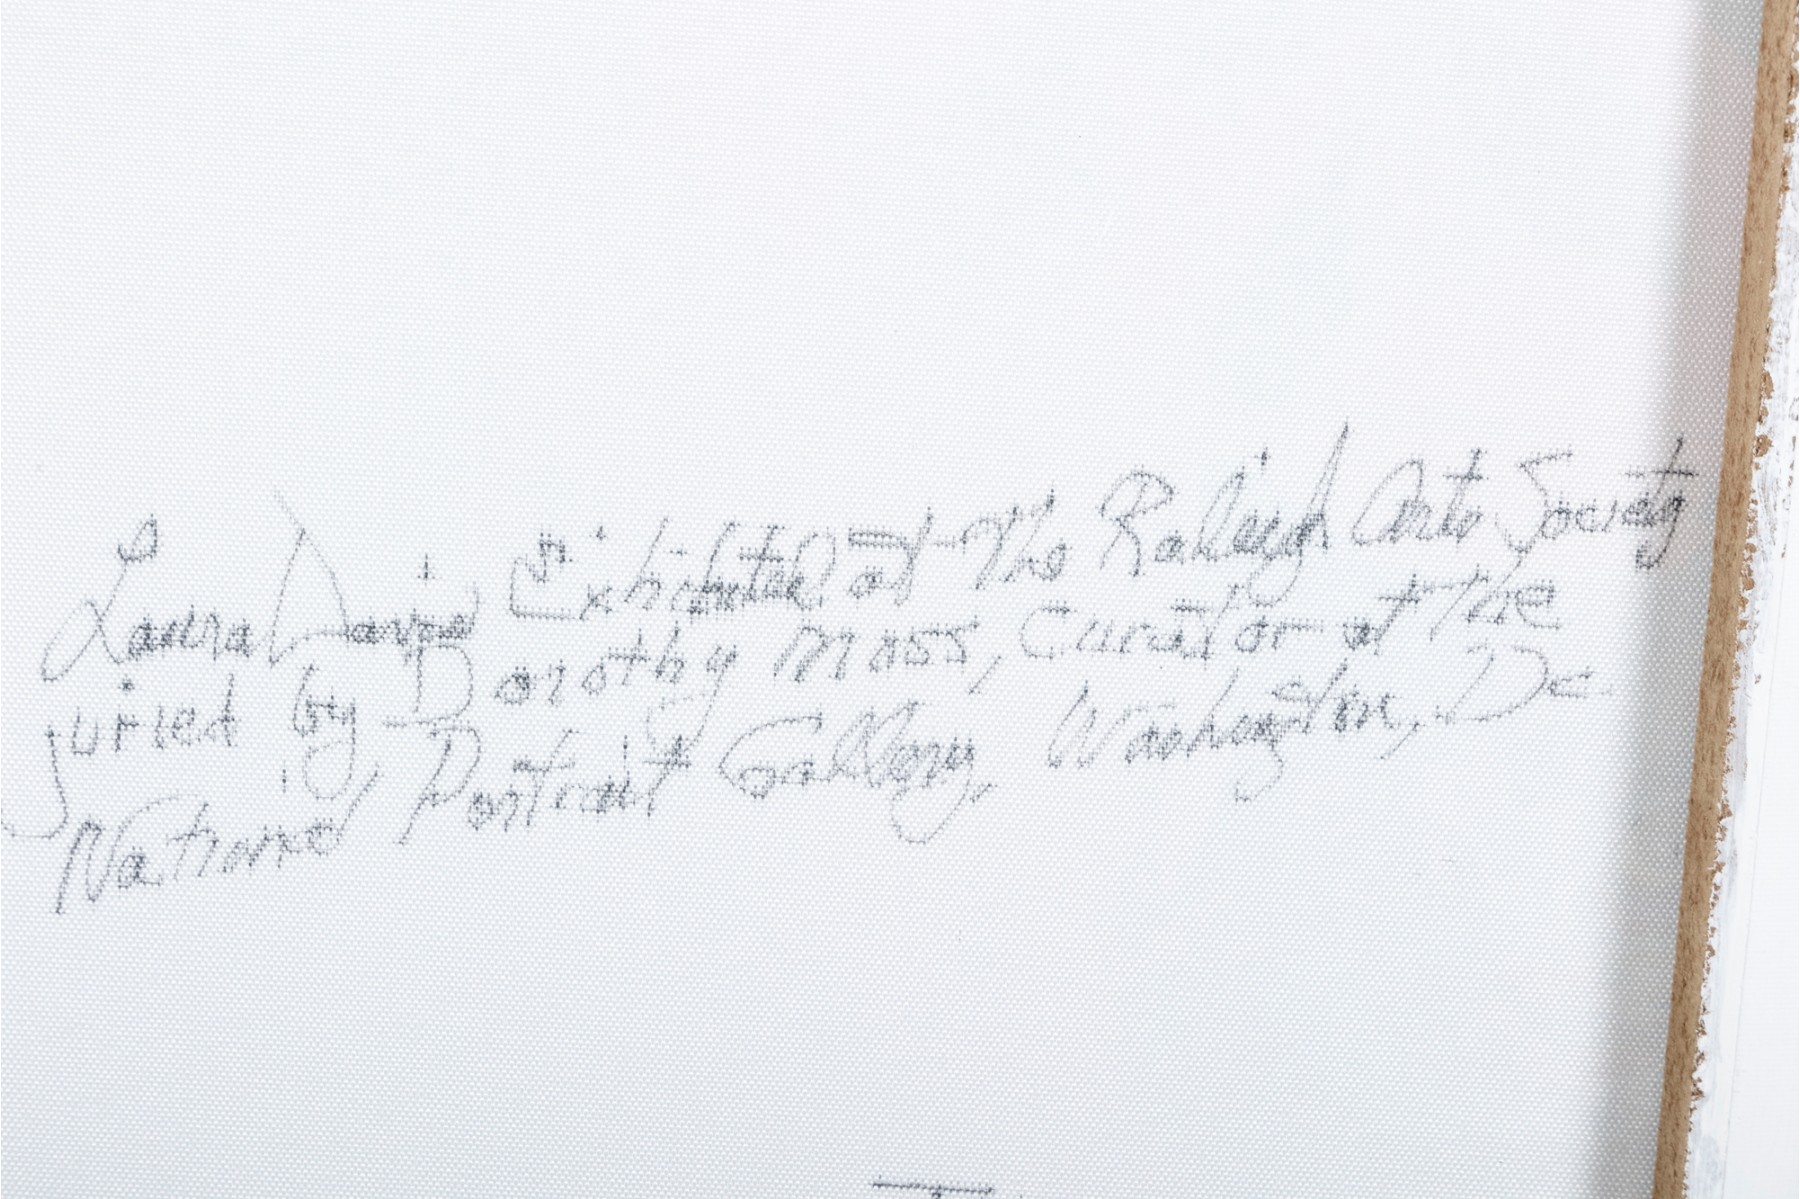 Laura Davis Exhibited at The Raleigh Arts Society
Juried by Dorothy Moss, Curator at the
National Portrait Gallery, Washington, DC.